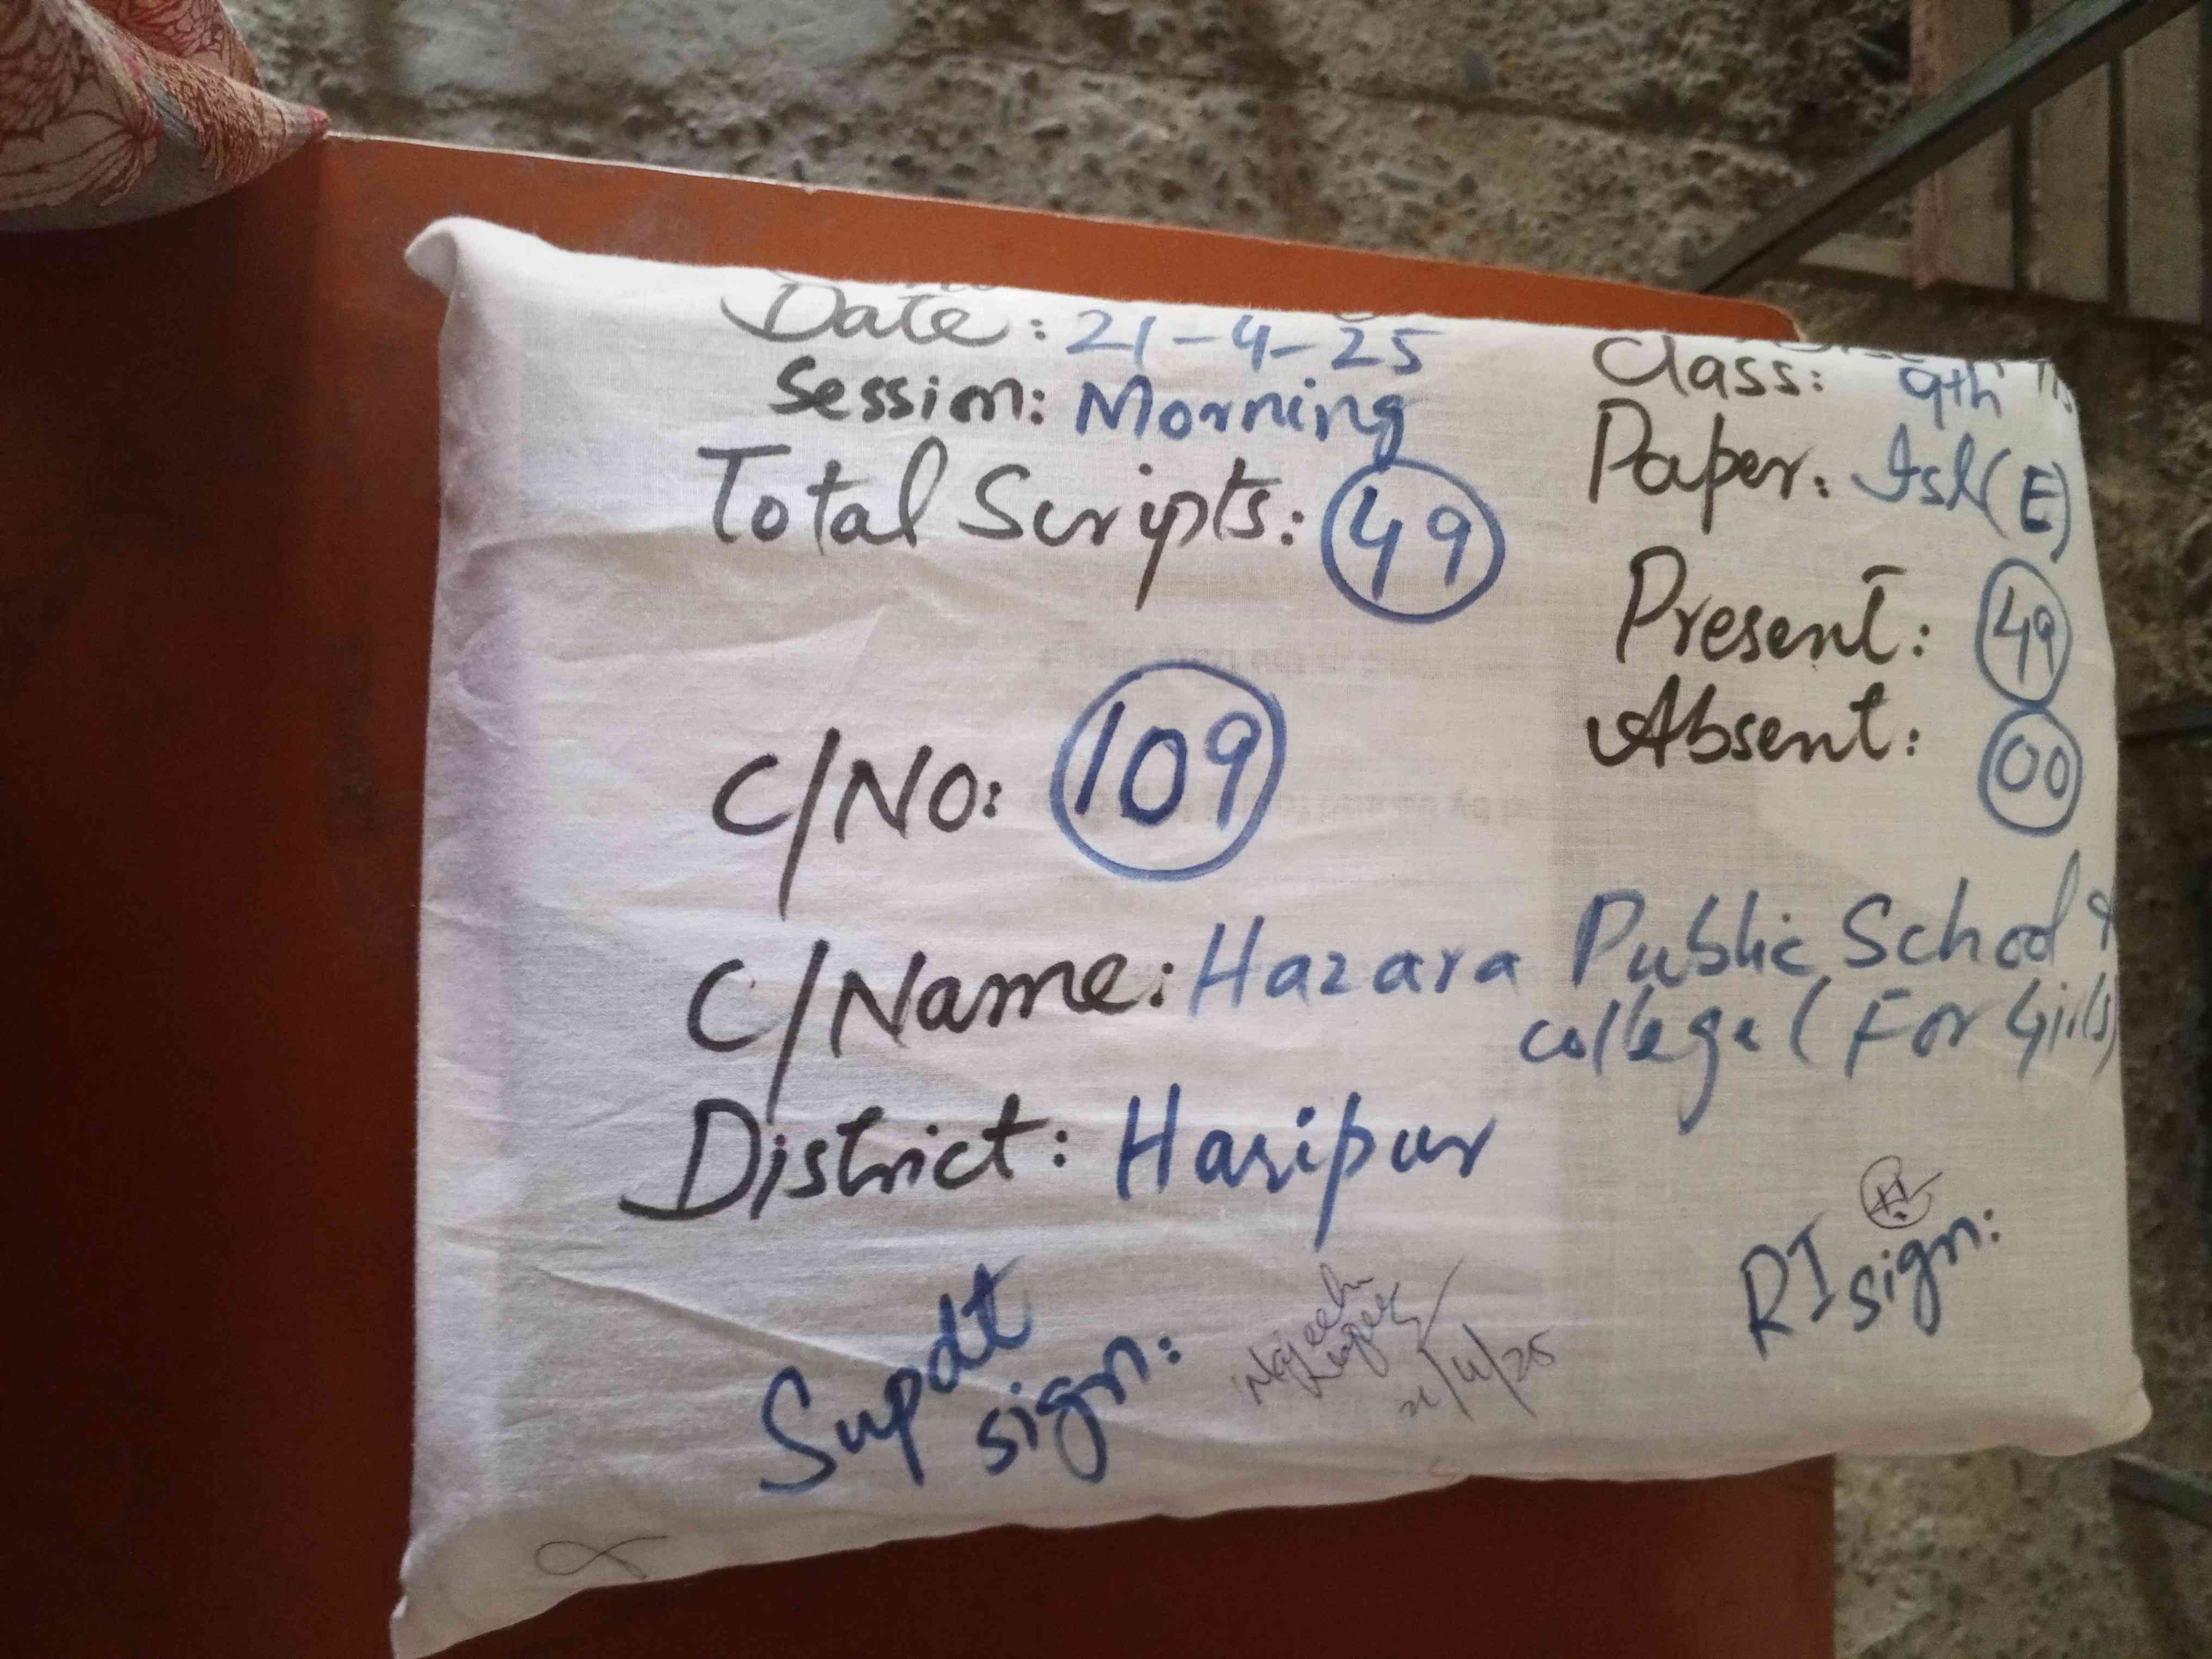 Date: 21-4-25
Class: 9th
Session: Morning
Paper: Isl(E)
Total Scripts: 49
Present: 49
Absent: 00
C/NO: 109
C/Name: Hazara Public School &
college (For Girls)
District: Haripur
Supdt
sign:
21/4/25
RI
sign: